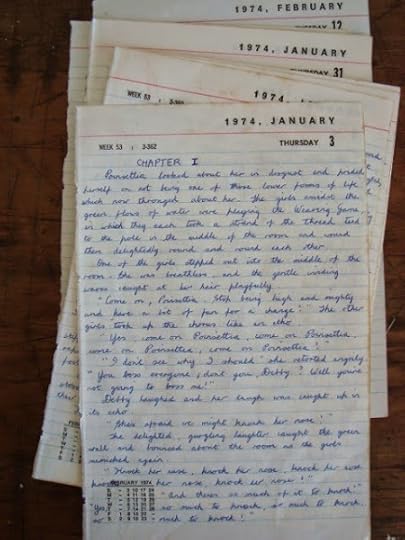 1974, FEBRUARY
12
1974, JANUARY
THURSDAY 31
1974,
1974, JANUARY
WEEK 53 : 3-362
THURSDAY 3
CHAPTER I
Poinsettia looked about her in disgust and prided
herself on not being one of those lower forms of life
which now thronged about her. The girls amidst the
green flows of water were playing the Weaving Game,
in which they each took a strand of the thread tied
to the pole in the middle of the room and wound
them delightedly round and round each other.
One of the girls stepped out into the middle of the
room. She was breathless and the gentle winding
waves caught at her hair playfully.
"Come on, Poinsettia. Stop being high and mighty
and have a bit of fun for a change!" The other
girls took up the chorus like an echo.
"Yes, come on Poinsettia, come on Poinsettia,
come on Poinsettia, come on Poinsettia!"
"I don't see why I should" she retorted angrily.
"You boss everyone, don't you, Debby? Well you're
not going to boss me!"
Debby laughed and her laugh was caught up in
its echo.
"She's afraid we might knock her nose!"
The delighted, gurgling laughter caught the green
wall and bounced about the room as the girls
mimicked again.
"Knock her nose, knock her nose, knock her nose
knock her nose, knock her nose!"
"And there's so much of it to knock!"
"Yes, so much to knock, so much to knock,
so much to knock!"
FEBRUARY 1974